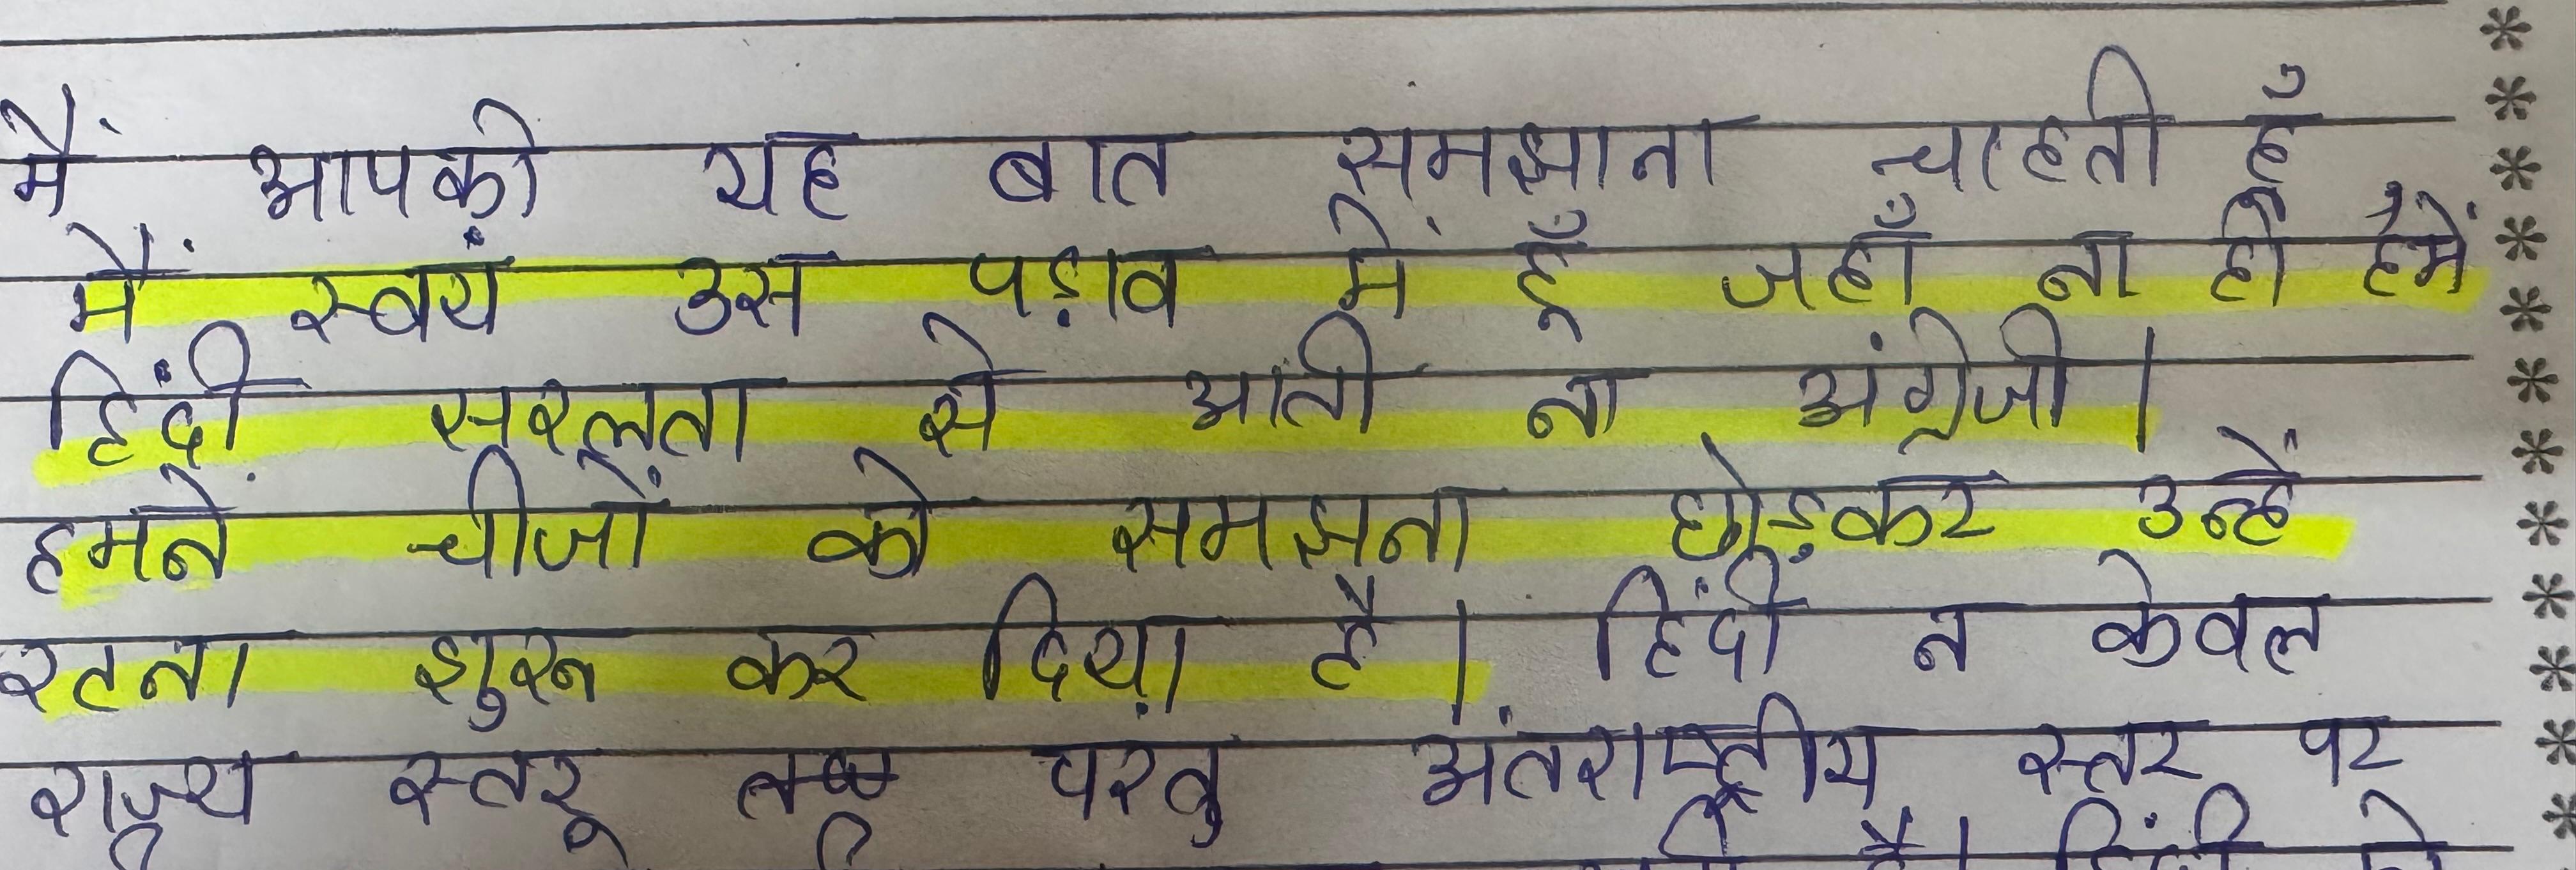 मैं आपको यह बात समझाना चाहती हूँ
मैं स्वयं उस पड़ाव में हूँ जहाँ ना ही हमें
हिंदी सरलता से आती ना अंग्रेजी।
हमने चीजों को समझना छोड़कर उन्हें
रटना शुरू कर दिया है। हिंदी न केवल
राज्य स्तर परंतु अंतराष्ट्रीय स्तर पर